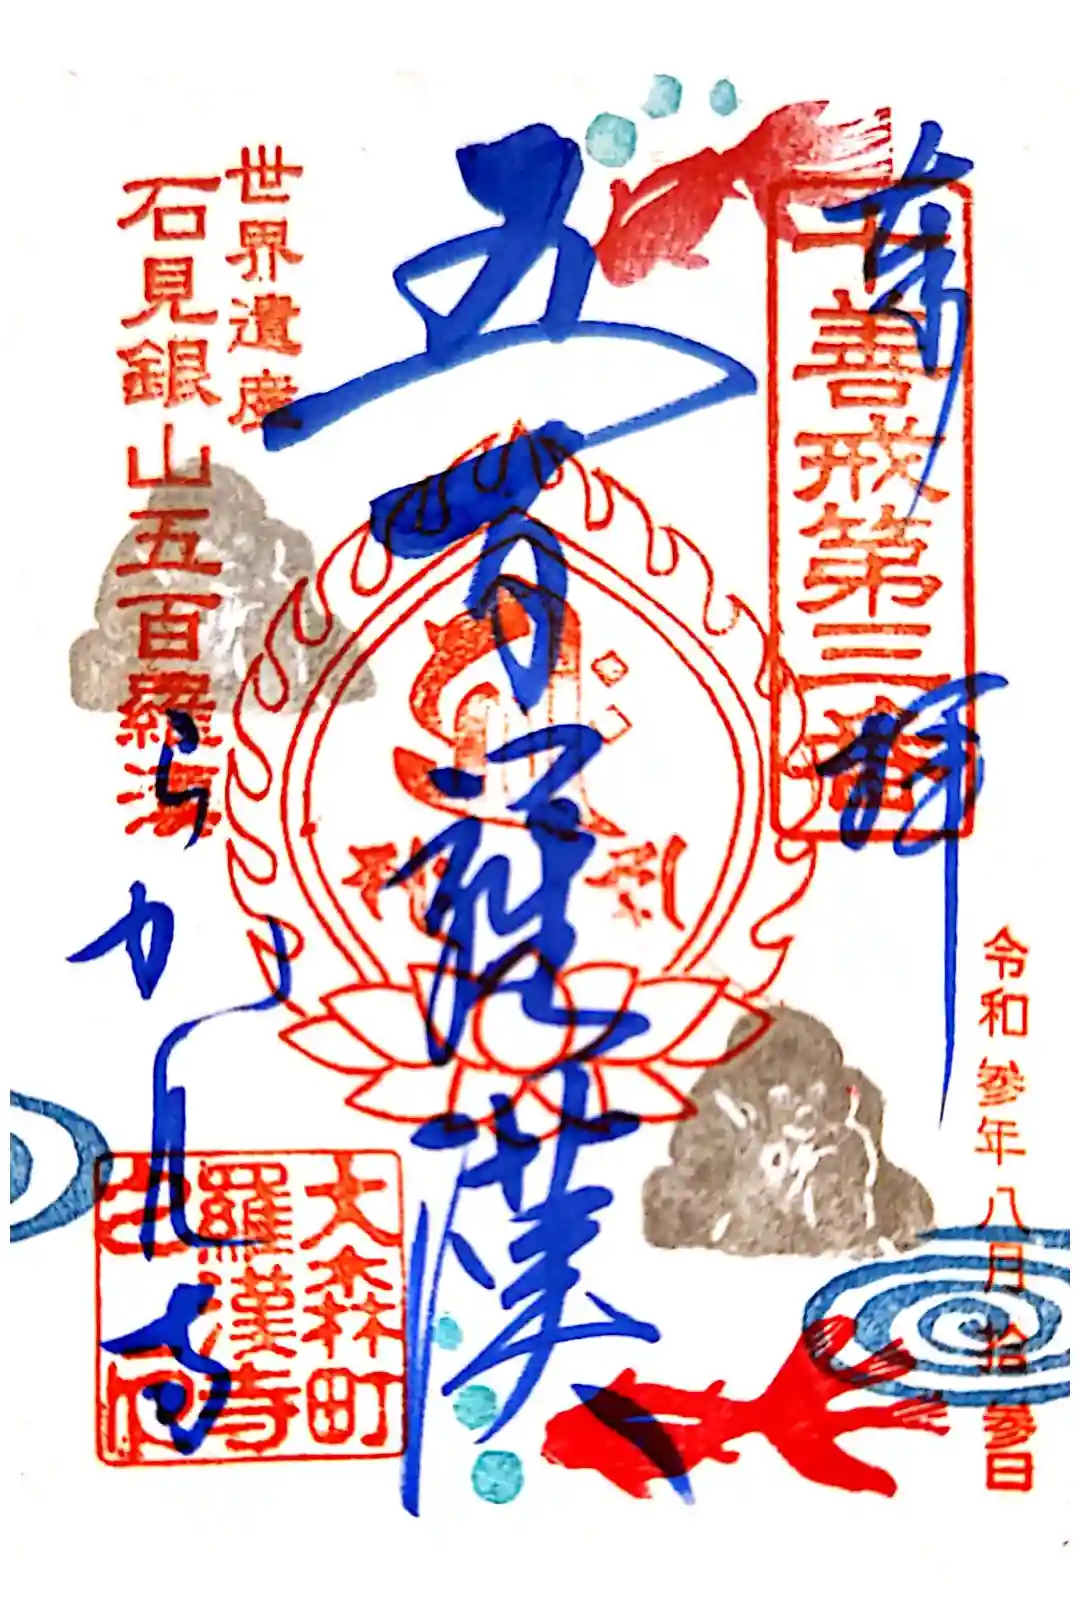 奉拝
十善戒第三番
令和参年八月拾参日
五百羅漢
世界遺産
石見銀山五百羅漢
らかん寺
大森町
羅漢寺
之印